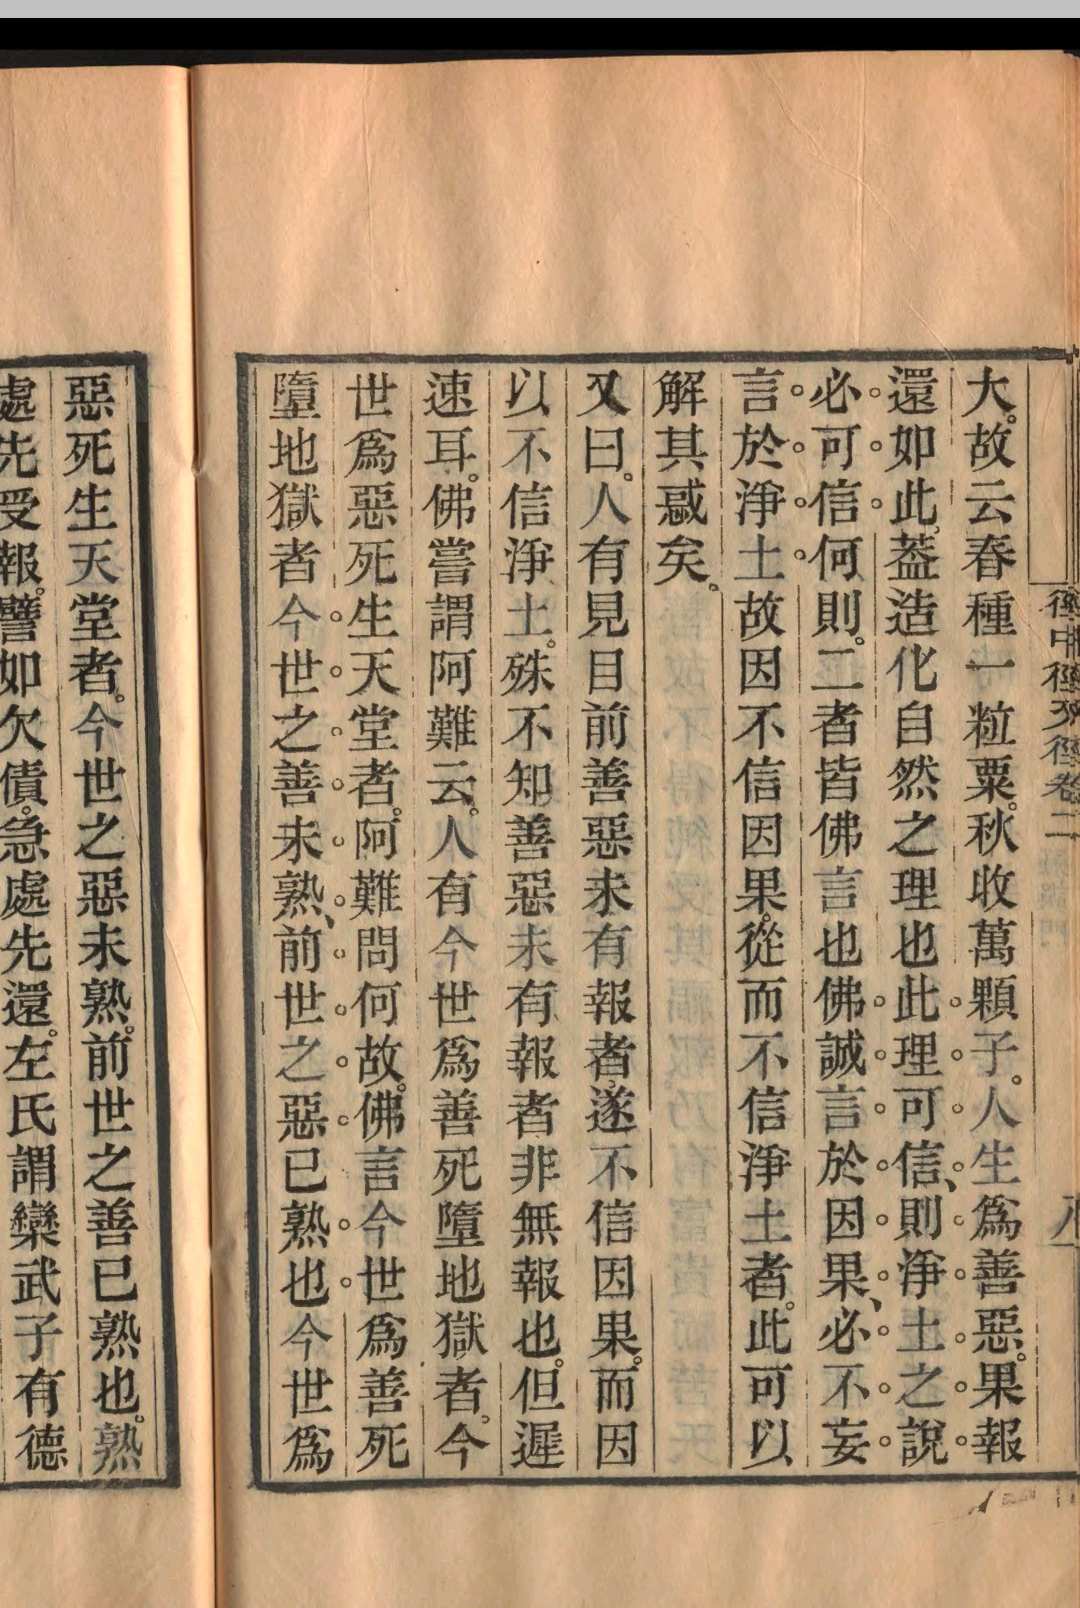 徑中徑又徑卷二
大。故云春種一粒粟。秋收萬顆子。人生爲善惡。果報
還如此。葢造化自然之理也此理可信、則淨土之說
必可信何則。二者皆佛言也佛誠言於因果、必不妄
言於淨土故因不信因果。從而不信淨土者。此可以
解其惑矣。
又曰。人有見目前善惡未有報者。遂不信因果。而因
以不信淨土。殊不知善惡未有報者非無報也。但遲
速耳。佛嘗謂阿難云。人有今世爲善死墮地獄者。今
世爲惡死生天堂者。阿難問何故。佛言今世爲善死
墮地獄者今世之善未熟、前世之惡已熟也今世爲
惡死生天堂者。今世之惡未熟。前世之善已熟也。熟
處先受報。譬如欠債。急處先還。左氏謂欒武子有德